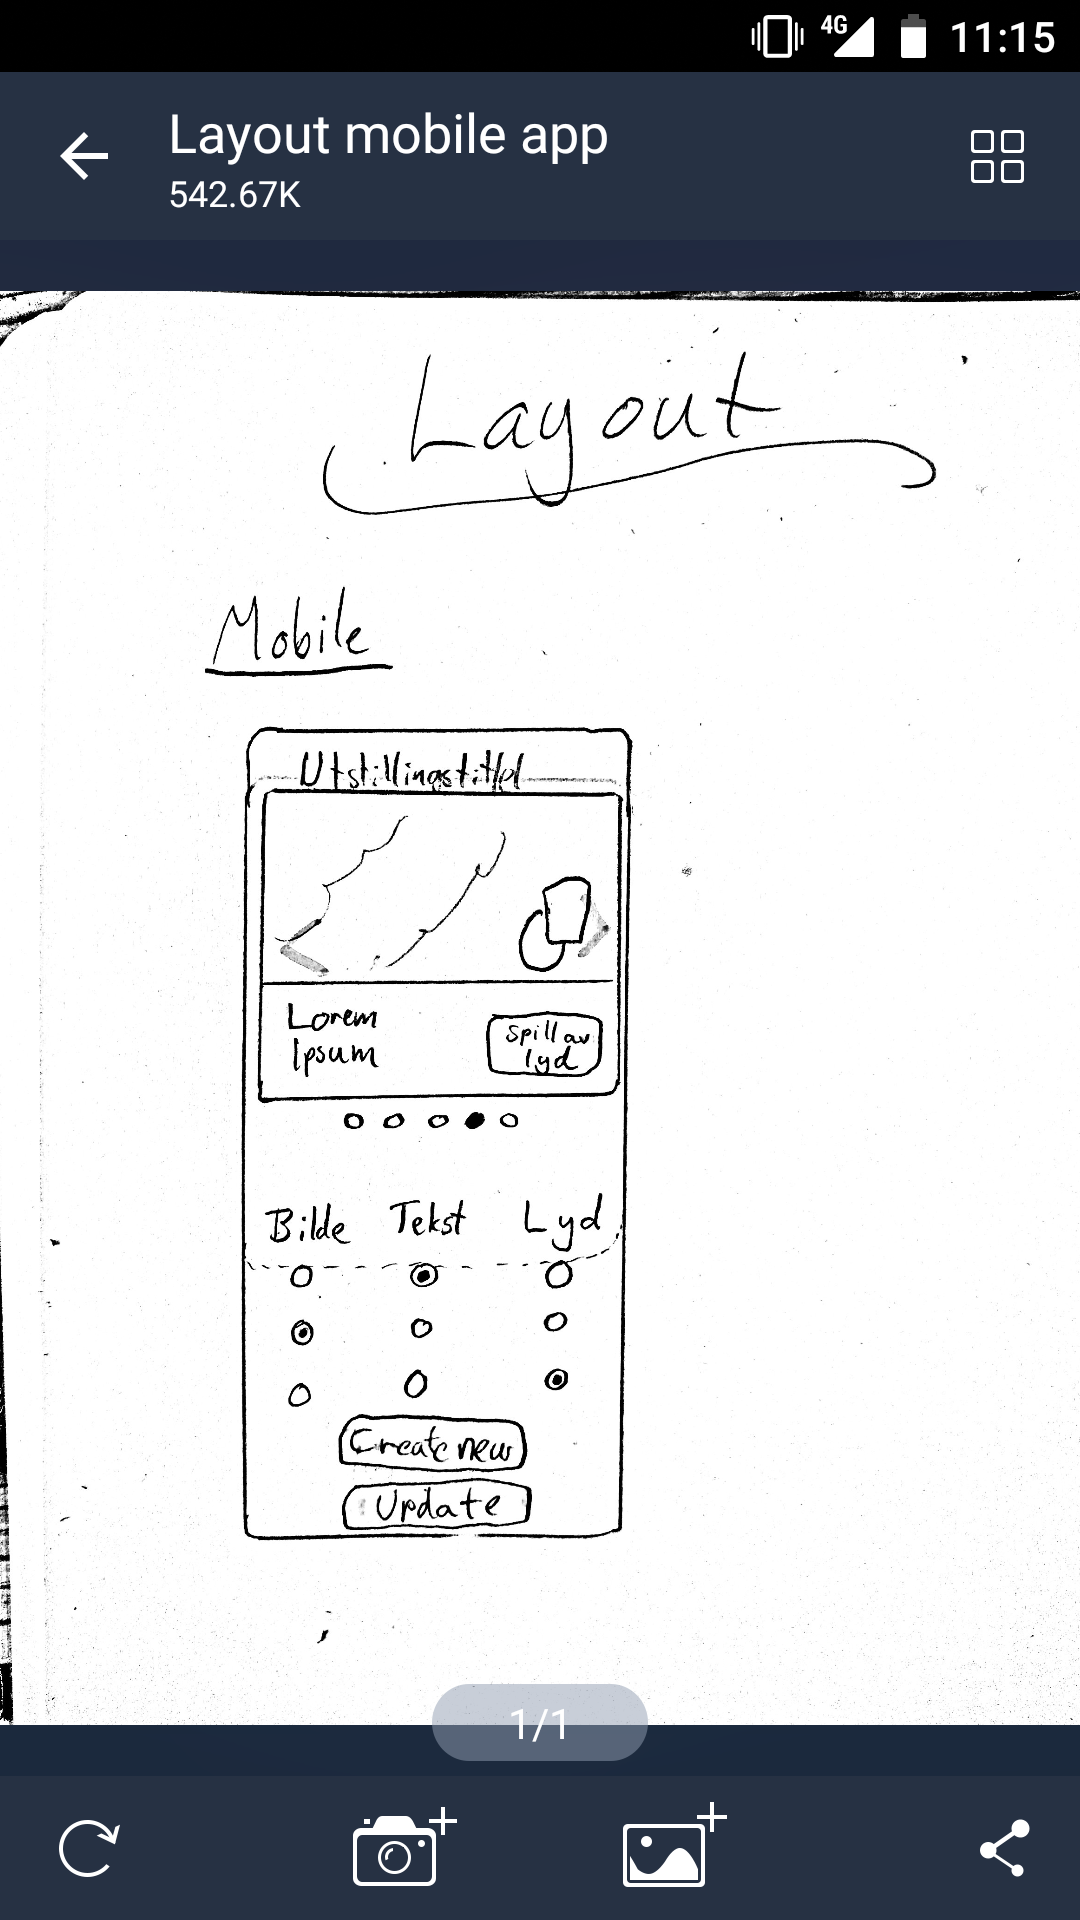 4G 11:15
Layout mobile app
542.67K
Layout
Mobile
Utstillingstittel
Lorem
Ipsum
Spill av
lyd
Bilde Tekst Lyd
Create new
Update
1/1